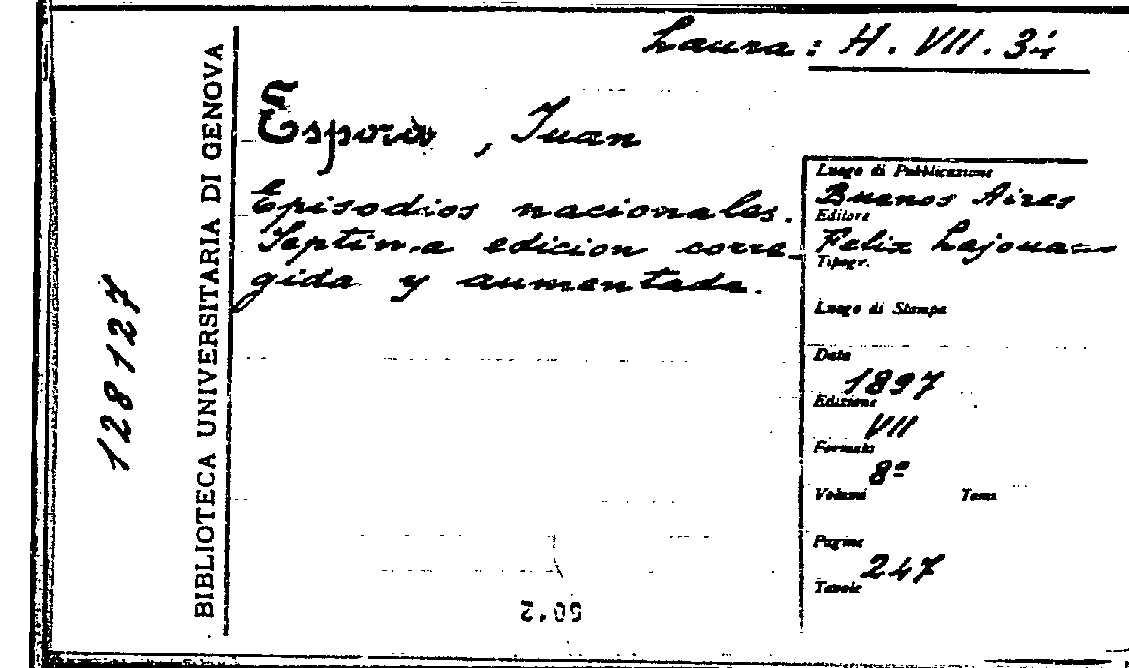 Laura: H. VII. 34
Espora, Juan
Episodios nacionales.
Septima edicion corre-
gida y aumentada.
BIBLIOTECA UNIVERSITARIA DI GENOVA
128127
Luogo di Pubblicazione
Buenos Aires
Editore
Felix Lajouane
Tipogr.
Luogo di Stampa
Data
1897
Edizione
VII
Formato
8º
Volumi Tomi
Pagine
247
Tavole